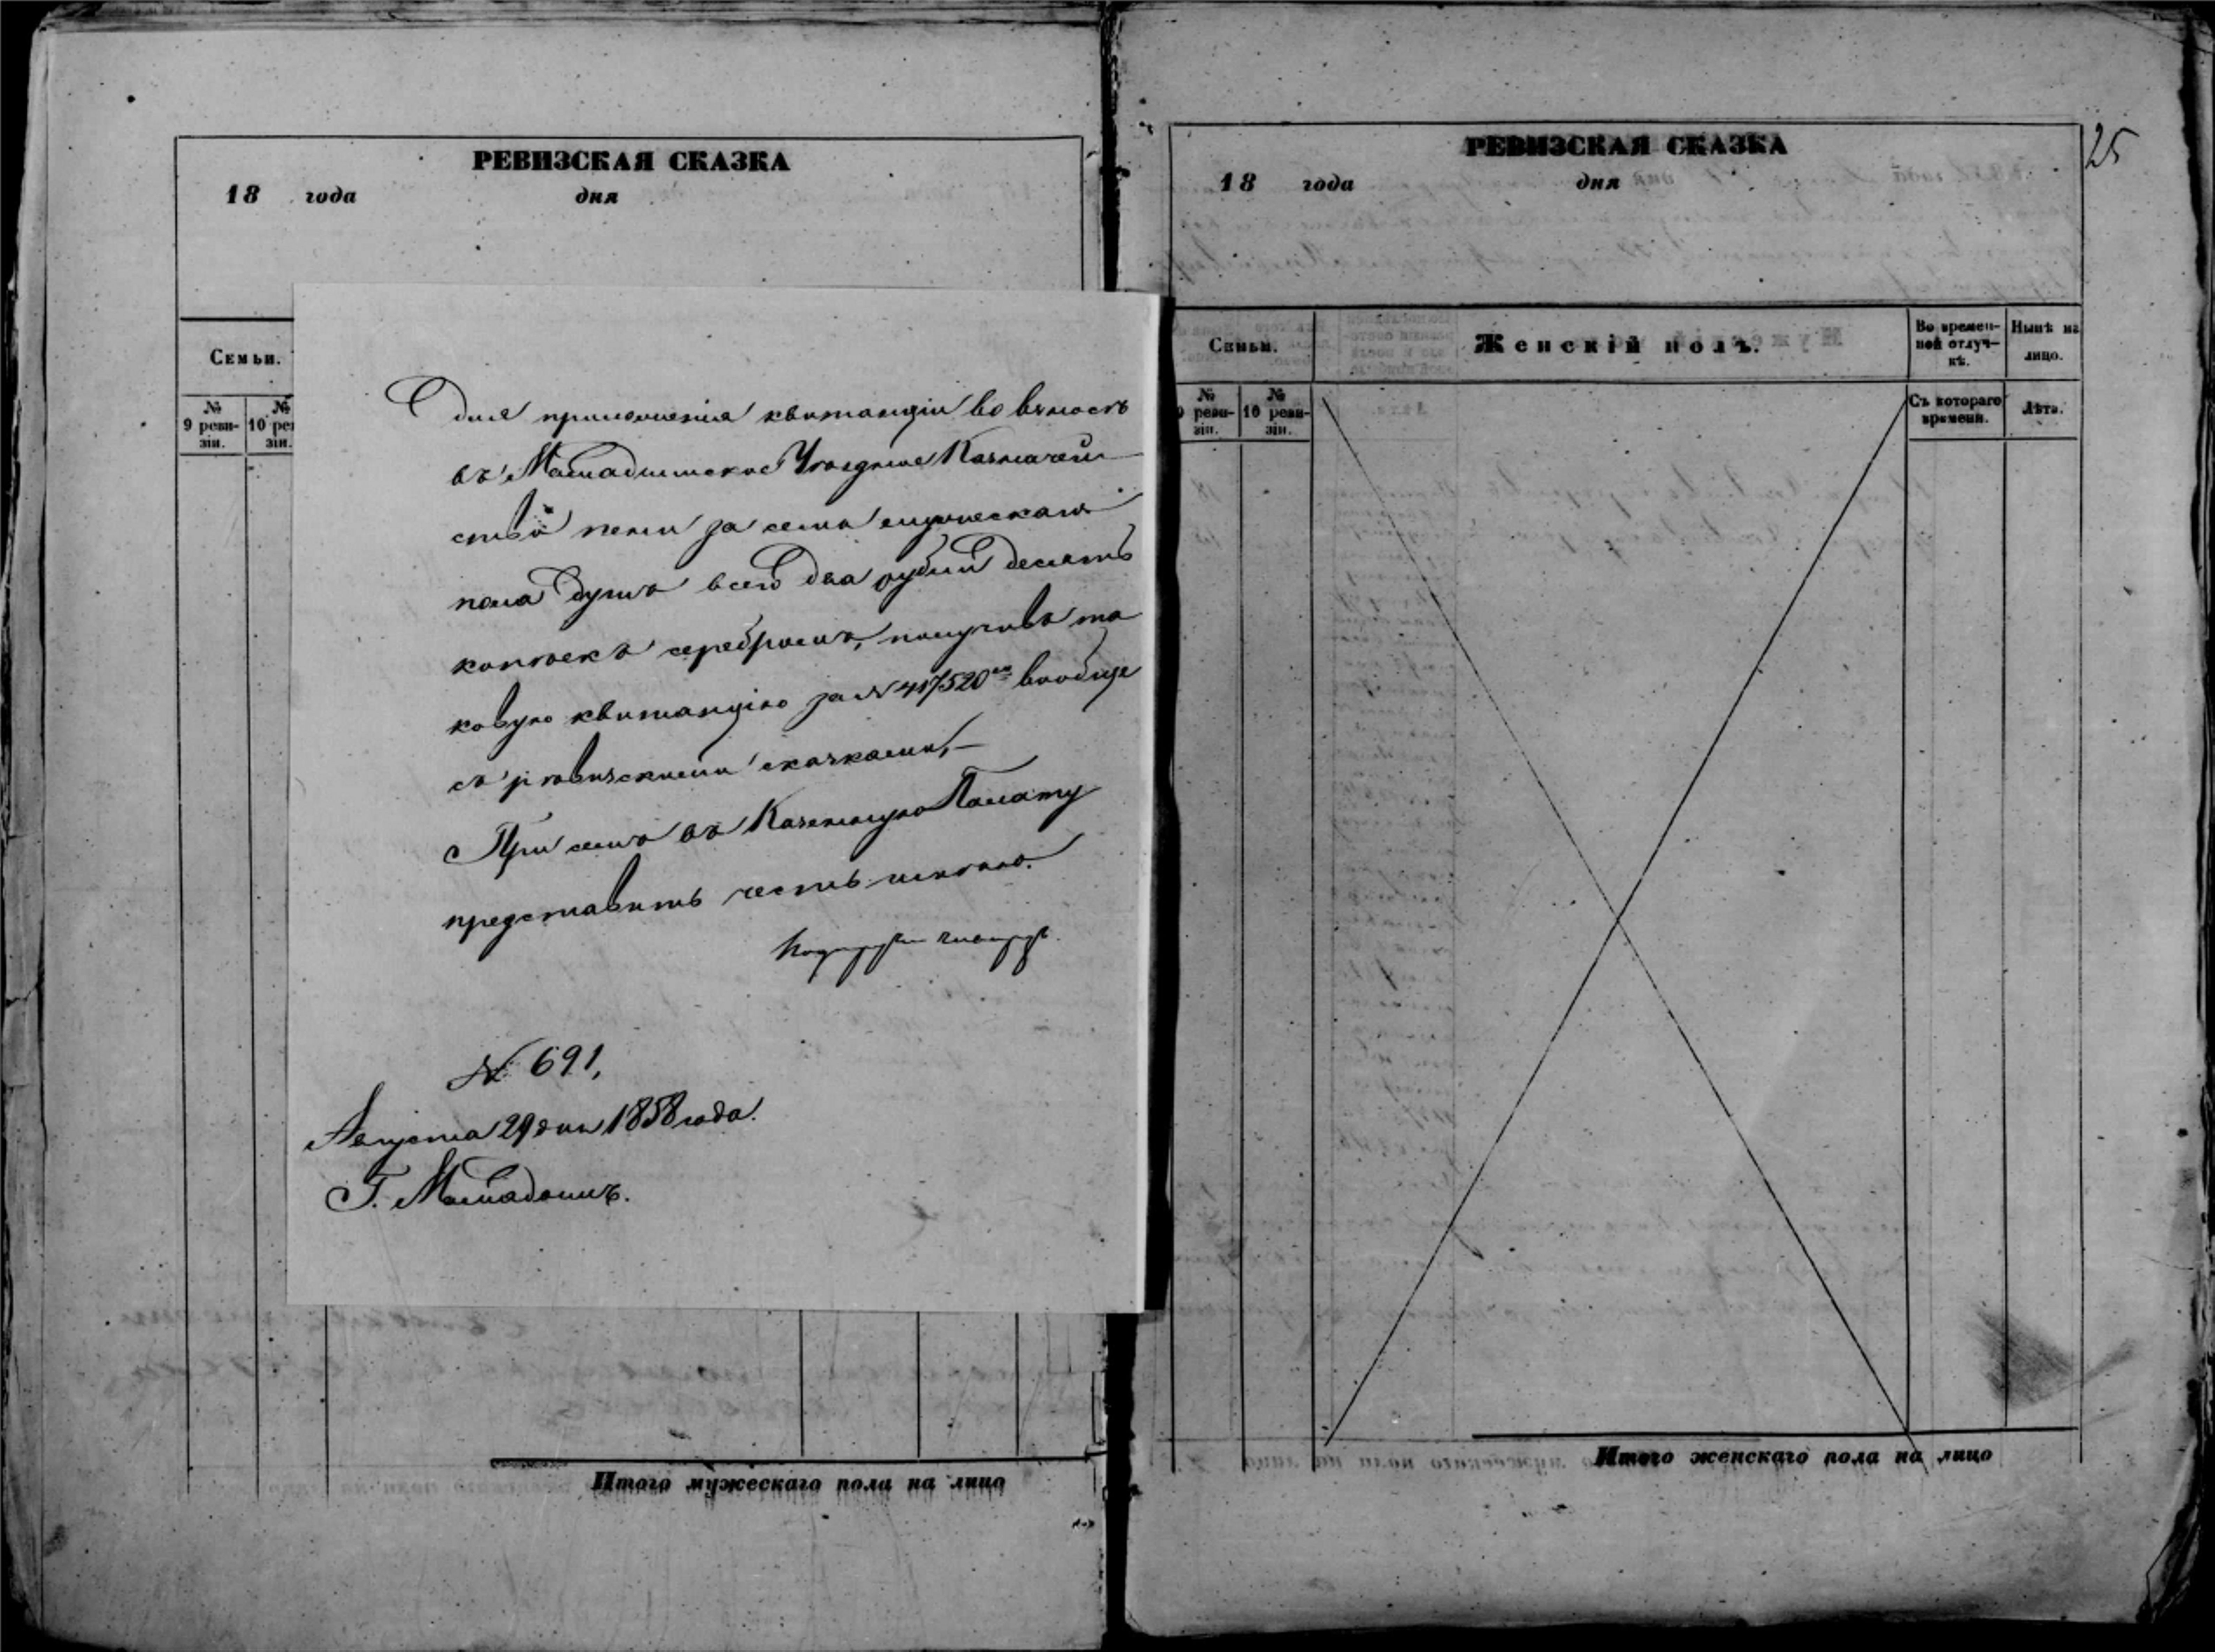 РЕВИЗСКАЯ СКАЗКА
18 года дня
Семьи.
№ 9 реви-зіи.
№ 10 ре зіи.
для приложенія квитанціи во взносѣ
въ Мамадышское Уѣздное Казначей
ство пени за семь мужескаго
пола душъ всего два рубли десять
копѣекъ серебромъ, получивъ та
ковую квитанцію за № 417520 вообще
съ ревизскими сказками,—
При семъ въ Казенную Палату
представить честь имѣю.
№ 691,
Августа 29 дня 1858 года.
Г. Мамадышъ.
Итого мужескаго пола на лицо
РЕВИЗСКАЯ СКАЗКА
25
18 года дня
Семьи.
Женскій полъ.
Во времен-ной отлуч-кѣ.
Нынѣ на лицо.
№ 9 реви-зіи.
№ 10 реви-зіи.
Съ котораго времени.
Лѣта.
Итого женскаго пола на лицо